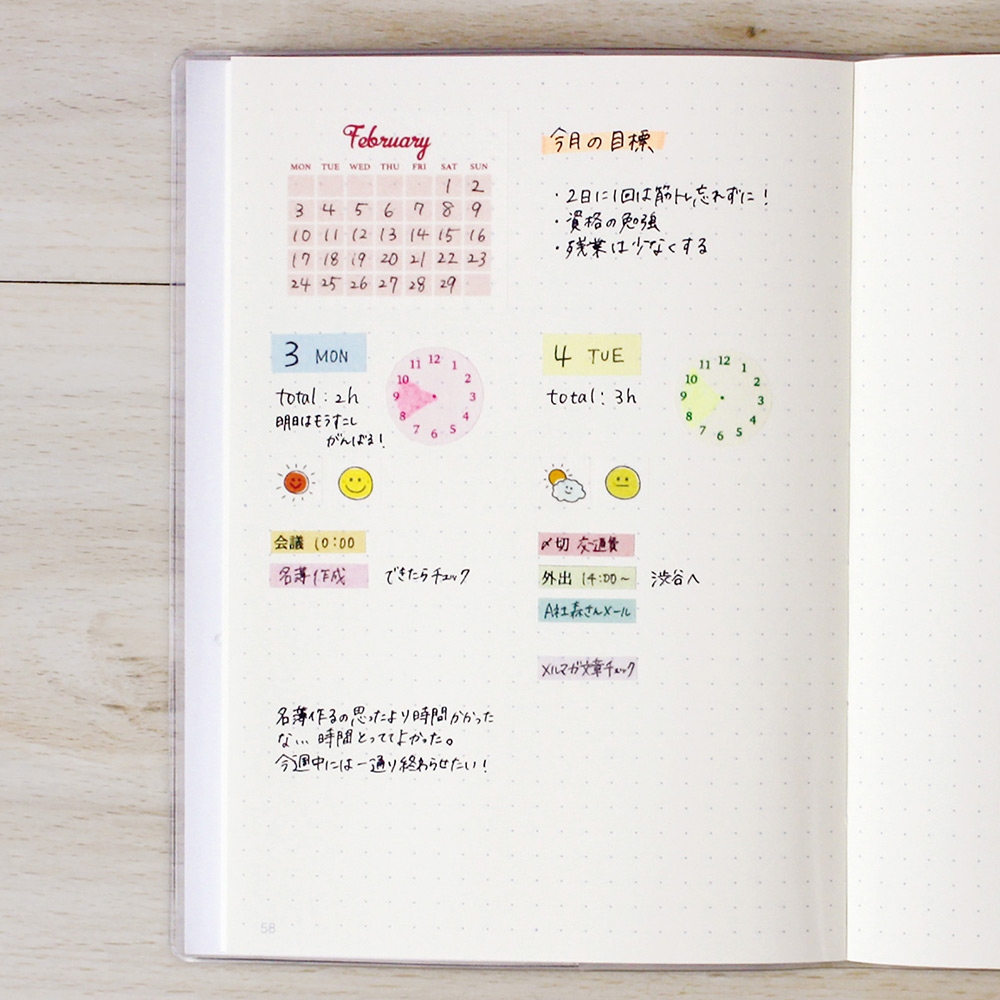 February
MON TUE WED THU FRI SAT SUN
1 2
3 4 5 6 7 8 9
10 11 12 13 14 15 16
17 18 19 20 21 22 23
24 25 26 27 28 29
今月の目標
・2日に1回は筋トレ忘れずに！
・資格の勉強
・残業は少なくする
3 MON
total：2h
明日はもうすこし
がんばる！
11 12 1
10 2
9 3
8 4
7 6 5
会議 10:00
名簿作成 できたらチェック
名簿作るの思ったより時間かかった
な… 時間とっててよかった。
今週中には一通り終わらせたい！
4 TUE
total：3h
11 12 1
10 2
9 3
8 4
7 6 5
〆切 交通費
外出 14:00〜 渋谷へ
A社森さんメール
メルマガ文章チェック
58